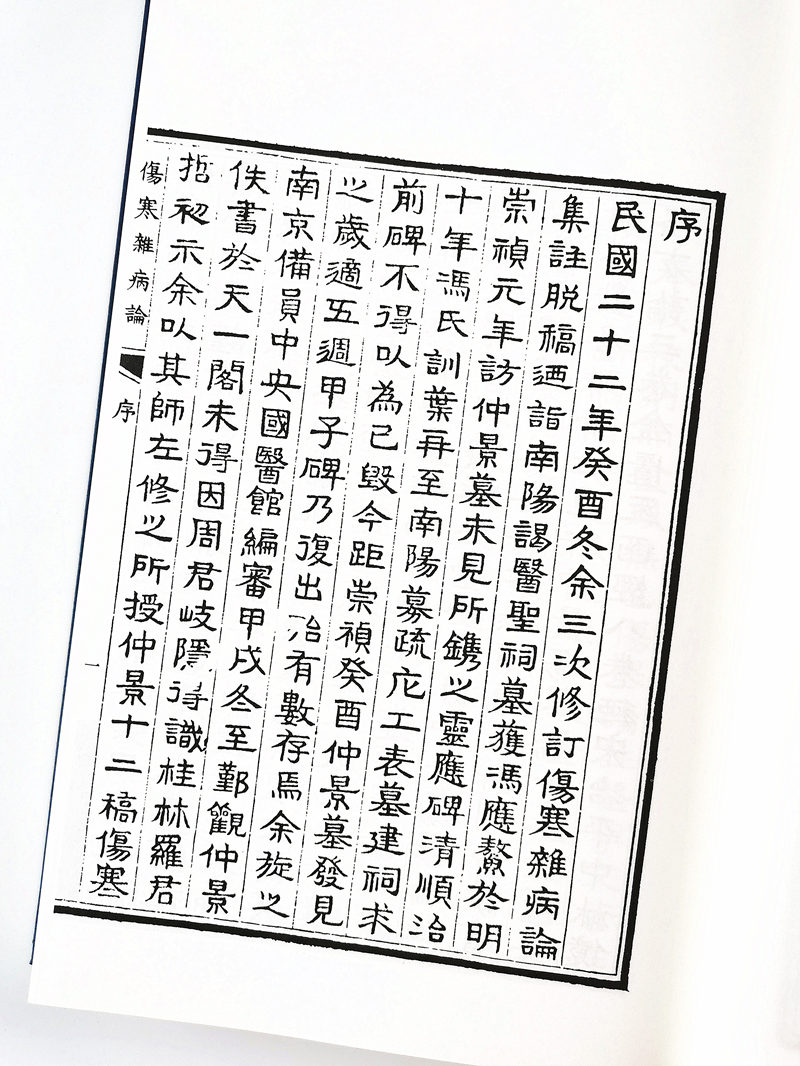 序
民國二十二年癸酉冬余三次修訂傷寒雜病論
集註脱稿迺詣南陽謁醫聖祠墓獲馮應鰲於明
崇禎元年訪仲景墓未見所鐫之靈應碑清順治
十年馮氏訓葉再至南陽募疏庀工表墓建祠求
前碑不得以為已毀今距崇禎癸酉仲景墓發見
之歲適五週甲子碑乃復出冶有數存焉余旋之
南京備員中央國醫館編審甲戌冬至鄞觀仲景
佚書於天一閣未得因周君岐隱得識桂林羅君
哲初示余以其師左修之所授仲景十二稿傷寒
傷寒雜病論 序 一